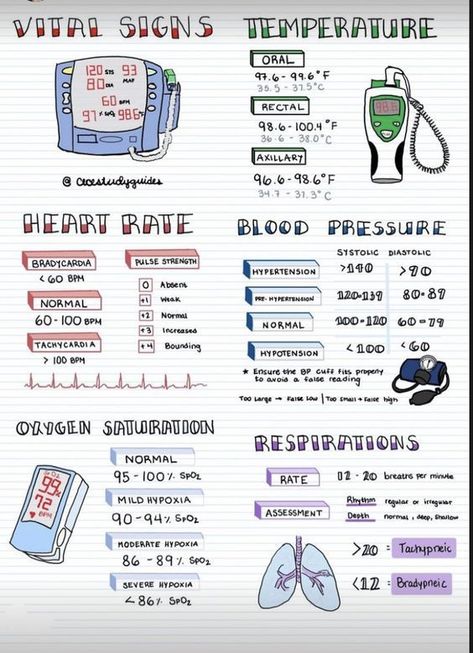 VITAL SIGNS
120 SYS 93
80 DIA MAP
60 BPM
97% SpO2 98.6°F
@ cecestudyguides
TEMPERATURE
ORAL
97.6 - 99.6°F
35.5 - 37.5°C
RECTAL
98.6 - 100.4°F
36.6 - 38.0°C
AXILLARY
96.6 - 98.6°F
34.7 - 37.3°C
98.6
HEART RATE
BRADYCARDIA
< 60 BPM
NORMAL
60 - 100 BPM
TACHYCARDIA
> 100 BPM
PULSE STRENGTH
0 Absent
+1 Weak
+2 Normal
+3 Increased
+4 Bounding
BLOOD PRESSURE
SYSTOLIC DIASTOLIC
HYPERTENSION >140 >90
PRE-HYPERTENSION 120-139 80-89
NORMAL 100-120 60-79
HYPOTENSION <100 <60
* Ensure the BP cuff fits properly
to avoid a false reading
Too Large → False low | Too small → False high
OXYGEN SATURATION
SpO2
99%
72
BPM
NORMAL
95 - 100% SpO2
MILD HYPOXIA
90 - 94% SpO2
MODERATE HYPOXIA
86 - 89% SpO2
SEVERE HYPOXIA
< 86% SpO2
RESPIRATIONS
RATE 12 - 20 breaths per minute
ASSESSMENT Rhythm regular or irregular
Depth normal, deep, shallow
>20 = Tachypneic
<12 = Bradypneic